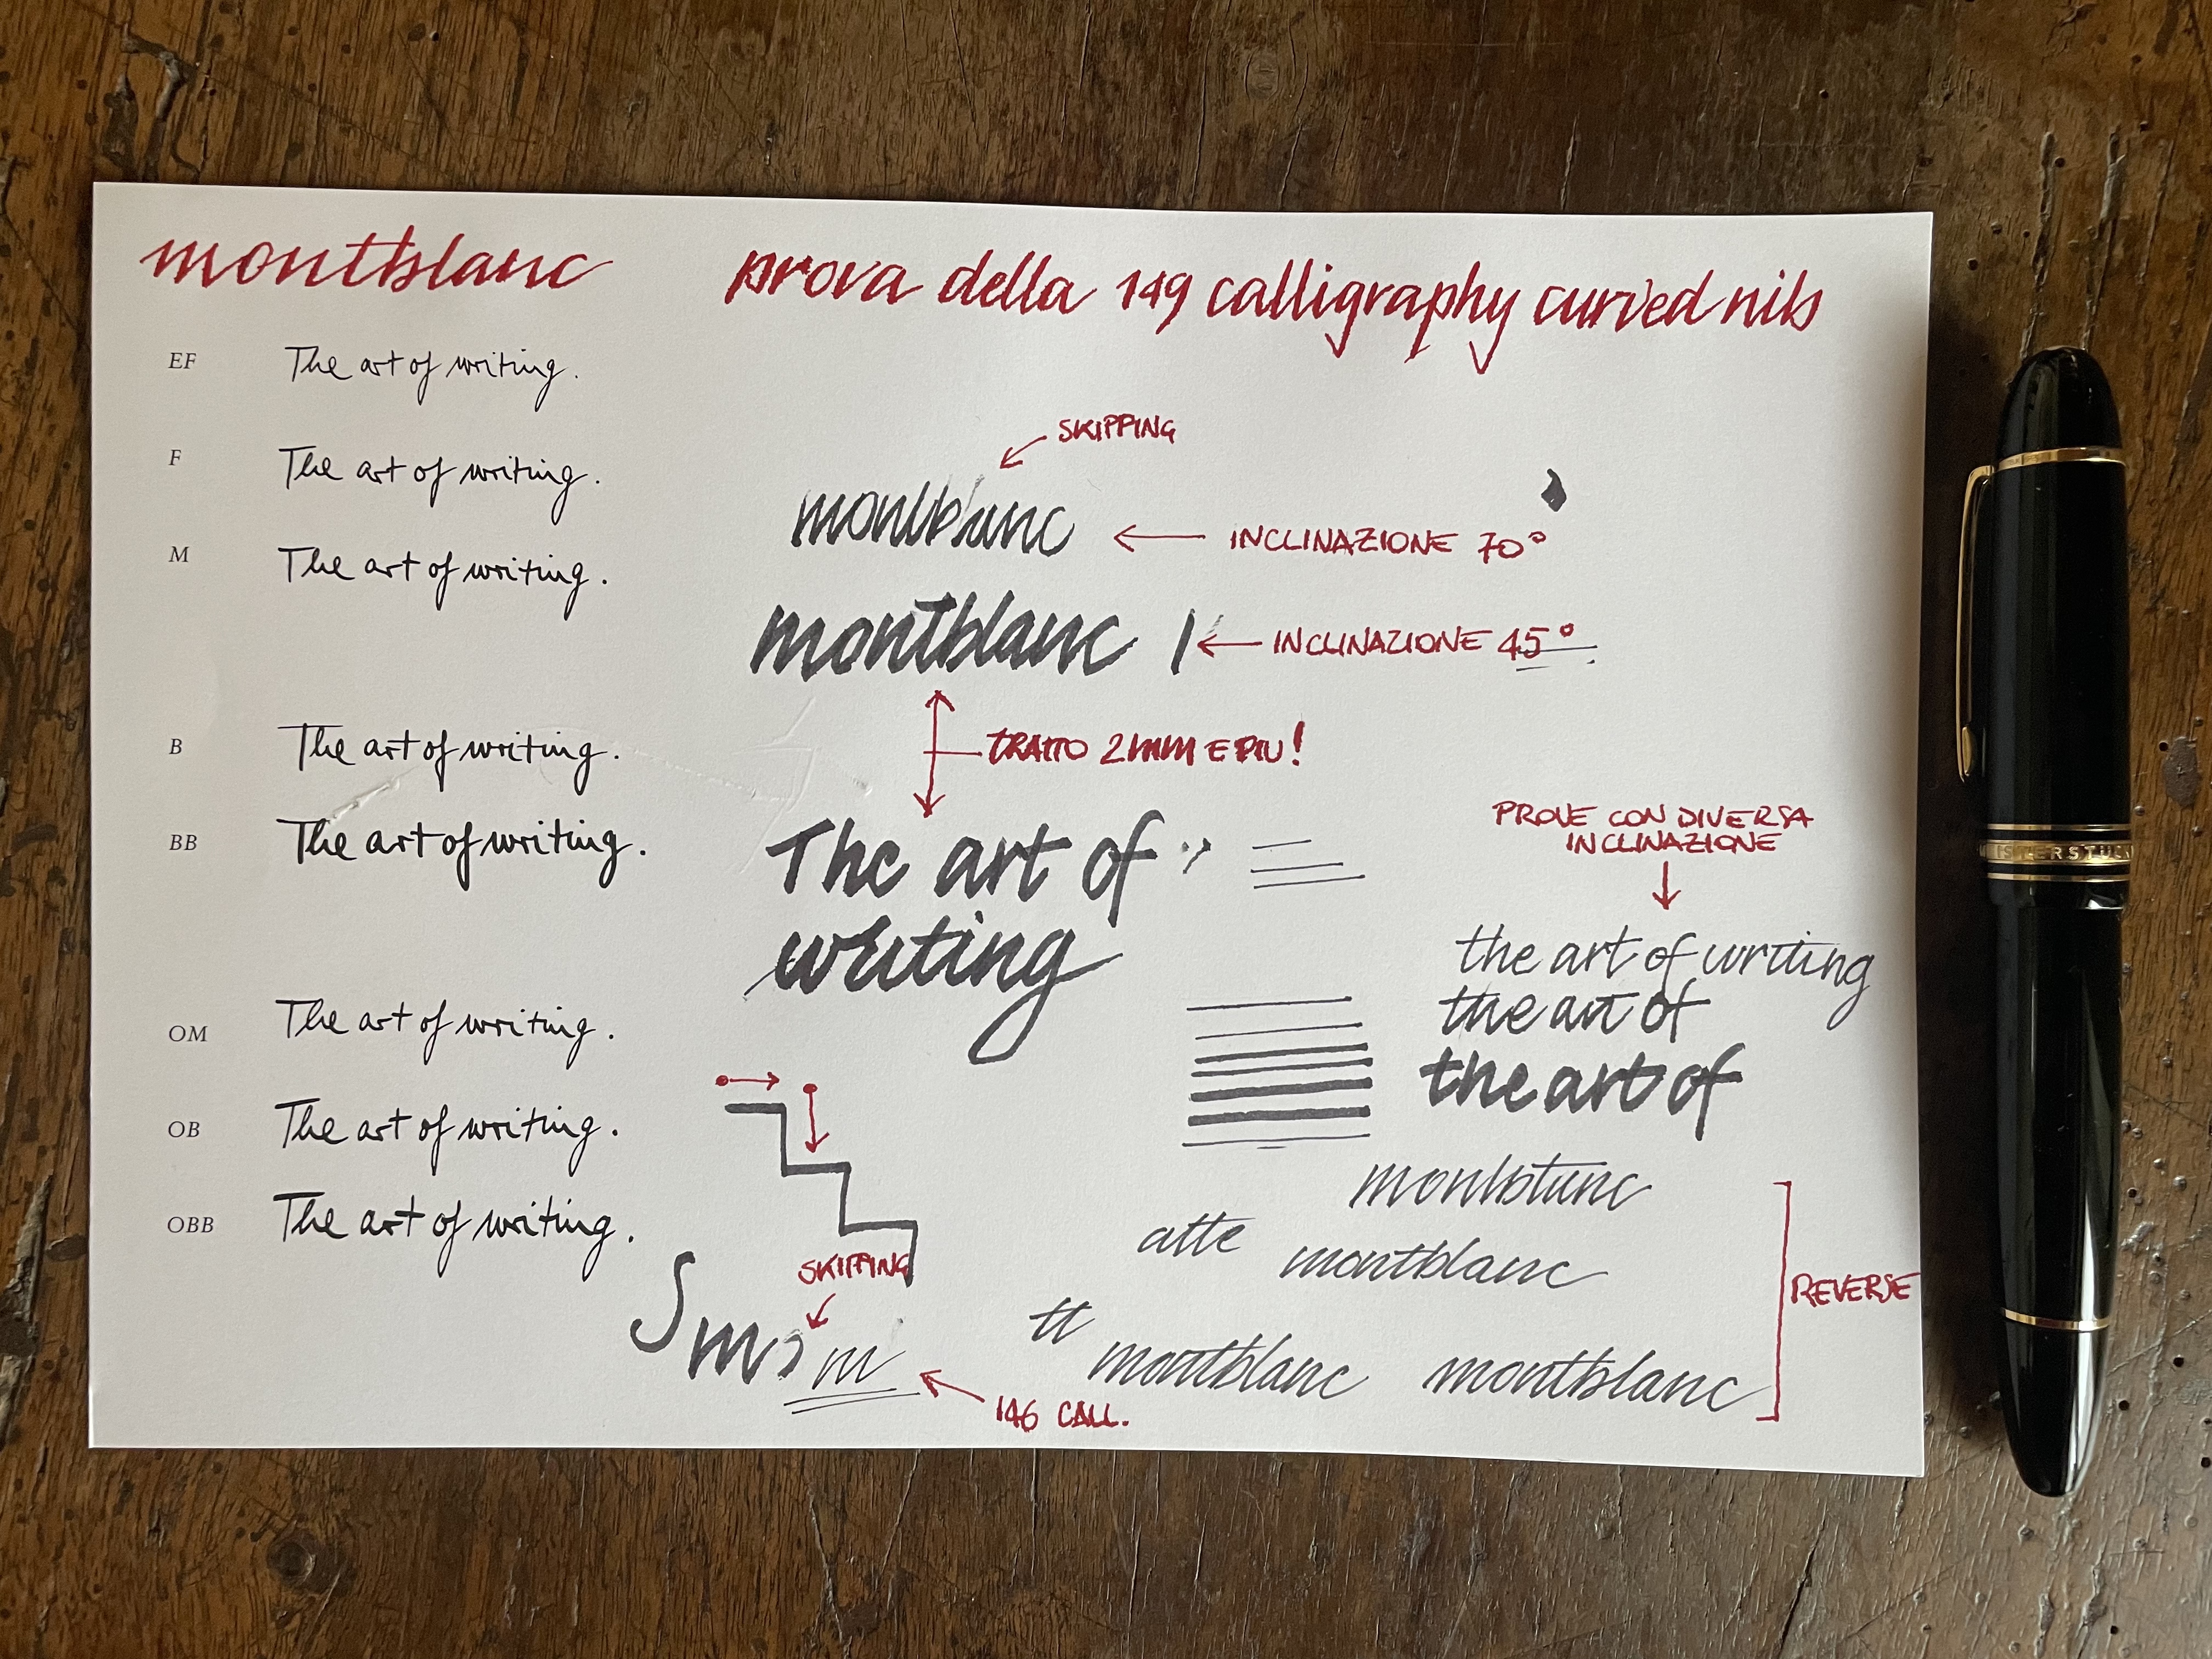 montblanc
prova della 149 calligraphy curved nib
EF The art of writing.
F The art of writing.
M The art of writing.
B The art of writing.
BB The art of writing.
OM The art of writing.
OB The art of writing.
OBB The art of writing.
SKIPPING
montblanc
INCLINAZIONE 70°
montblanc
INCLINAZIONE 45°
TRATTO 2MM E PIU!
The art of
writing
PROVE CON DIVERSA
INCLINAZIONE
the art of writing
the art of
the art of
SKIPPING
m
146 CALL.
montblanc
atte
montblanc
tt
montblanc
montblanc
REVERSE